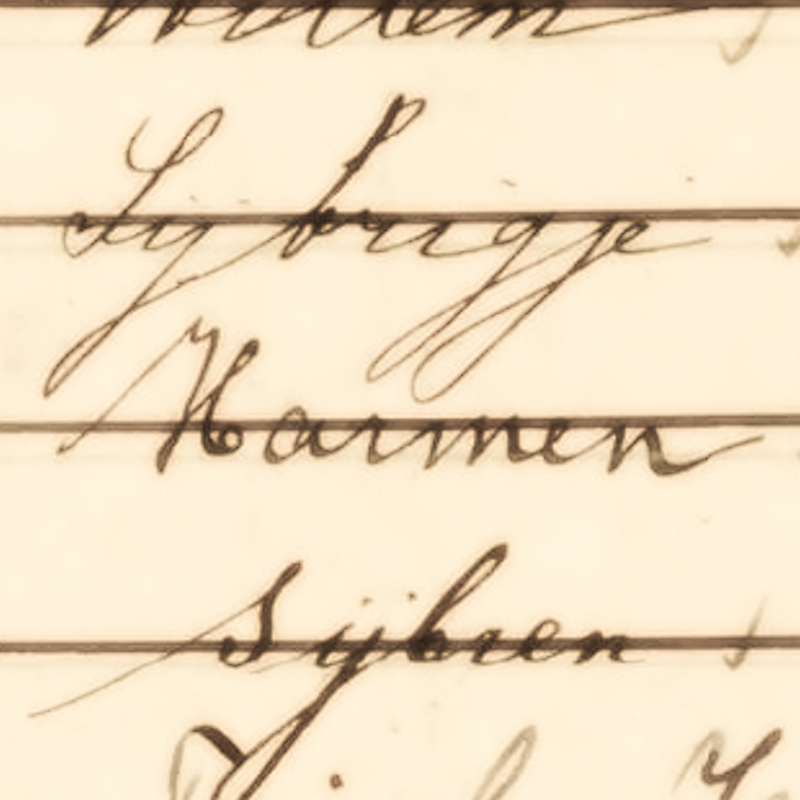 Willem
Sybrigje
Harmen
Sijbren